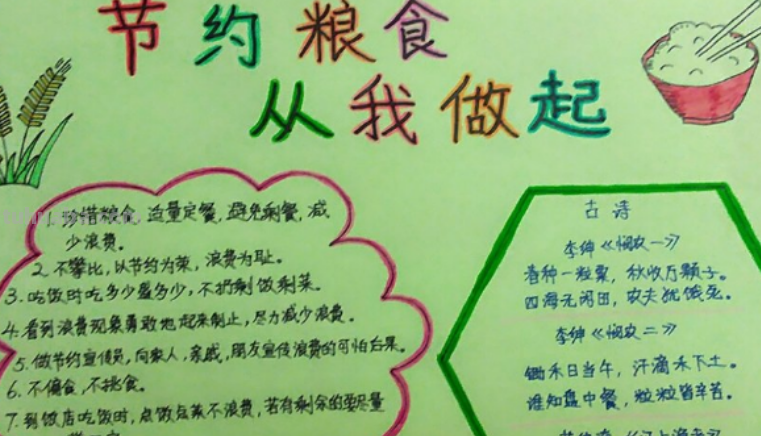 节约粮食
从我做起
1. 珍惜粮食,适量定餐,避免剩餐,减
少浪费。
2. 不攀比,以节约为荣,浪费为耻。
3. 吃饭时吃多少盛多少,不扔剩饭剩菜。
4. 看到浪费现象勇敢地起来制止,尽力减少浪费。
5. 做节约宣传员,向家人,亲戚,朋友宣传浪费的可怕后果。
6. 不偏食,不挑食。
7. 到饭店吃饭时,点饭点菜不浪费,若有剩余的要尽量
古诗
李绅《悯农一》
春种一粒粟,秋收万颗子。
四海无闲田,农夫犹饿死。
李绅《悯农二》
锄禾日当午,汗滴禾下土。
谁知盘中餐,粒粒皆辛苦。